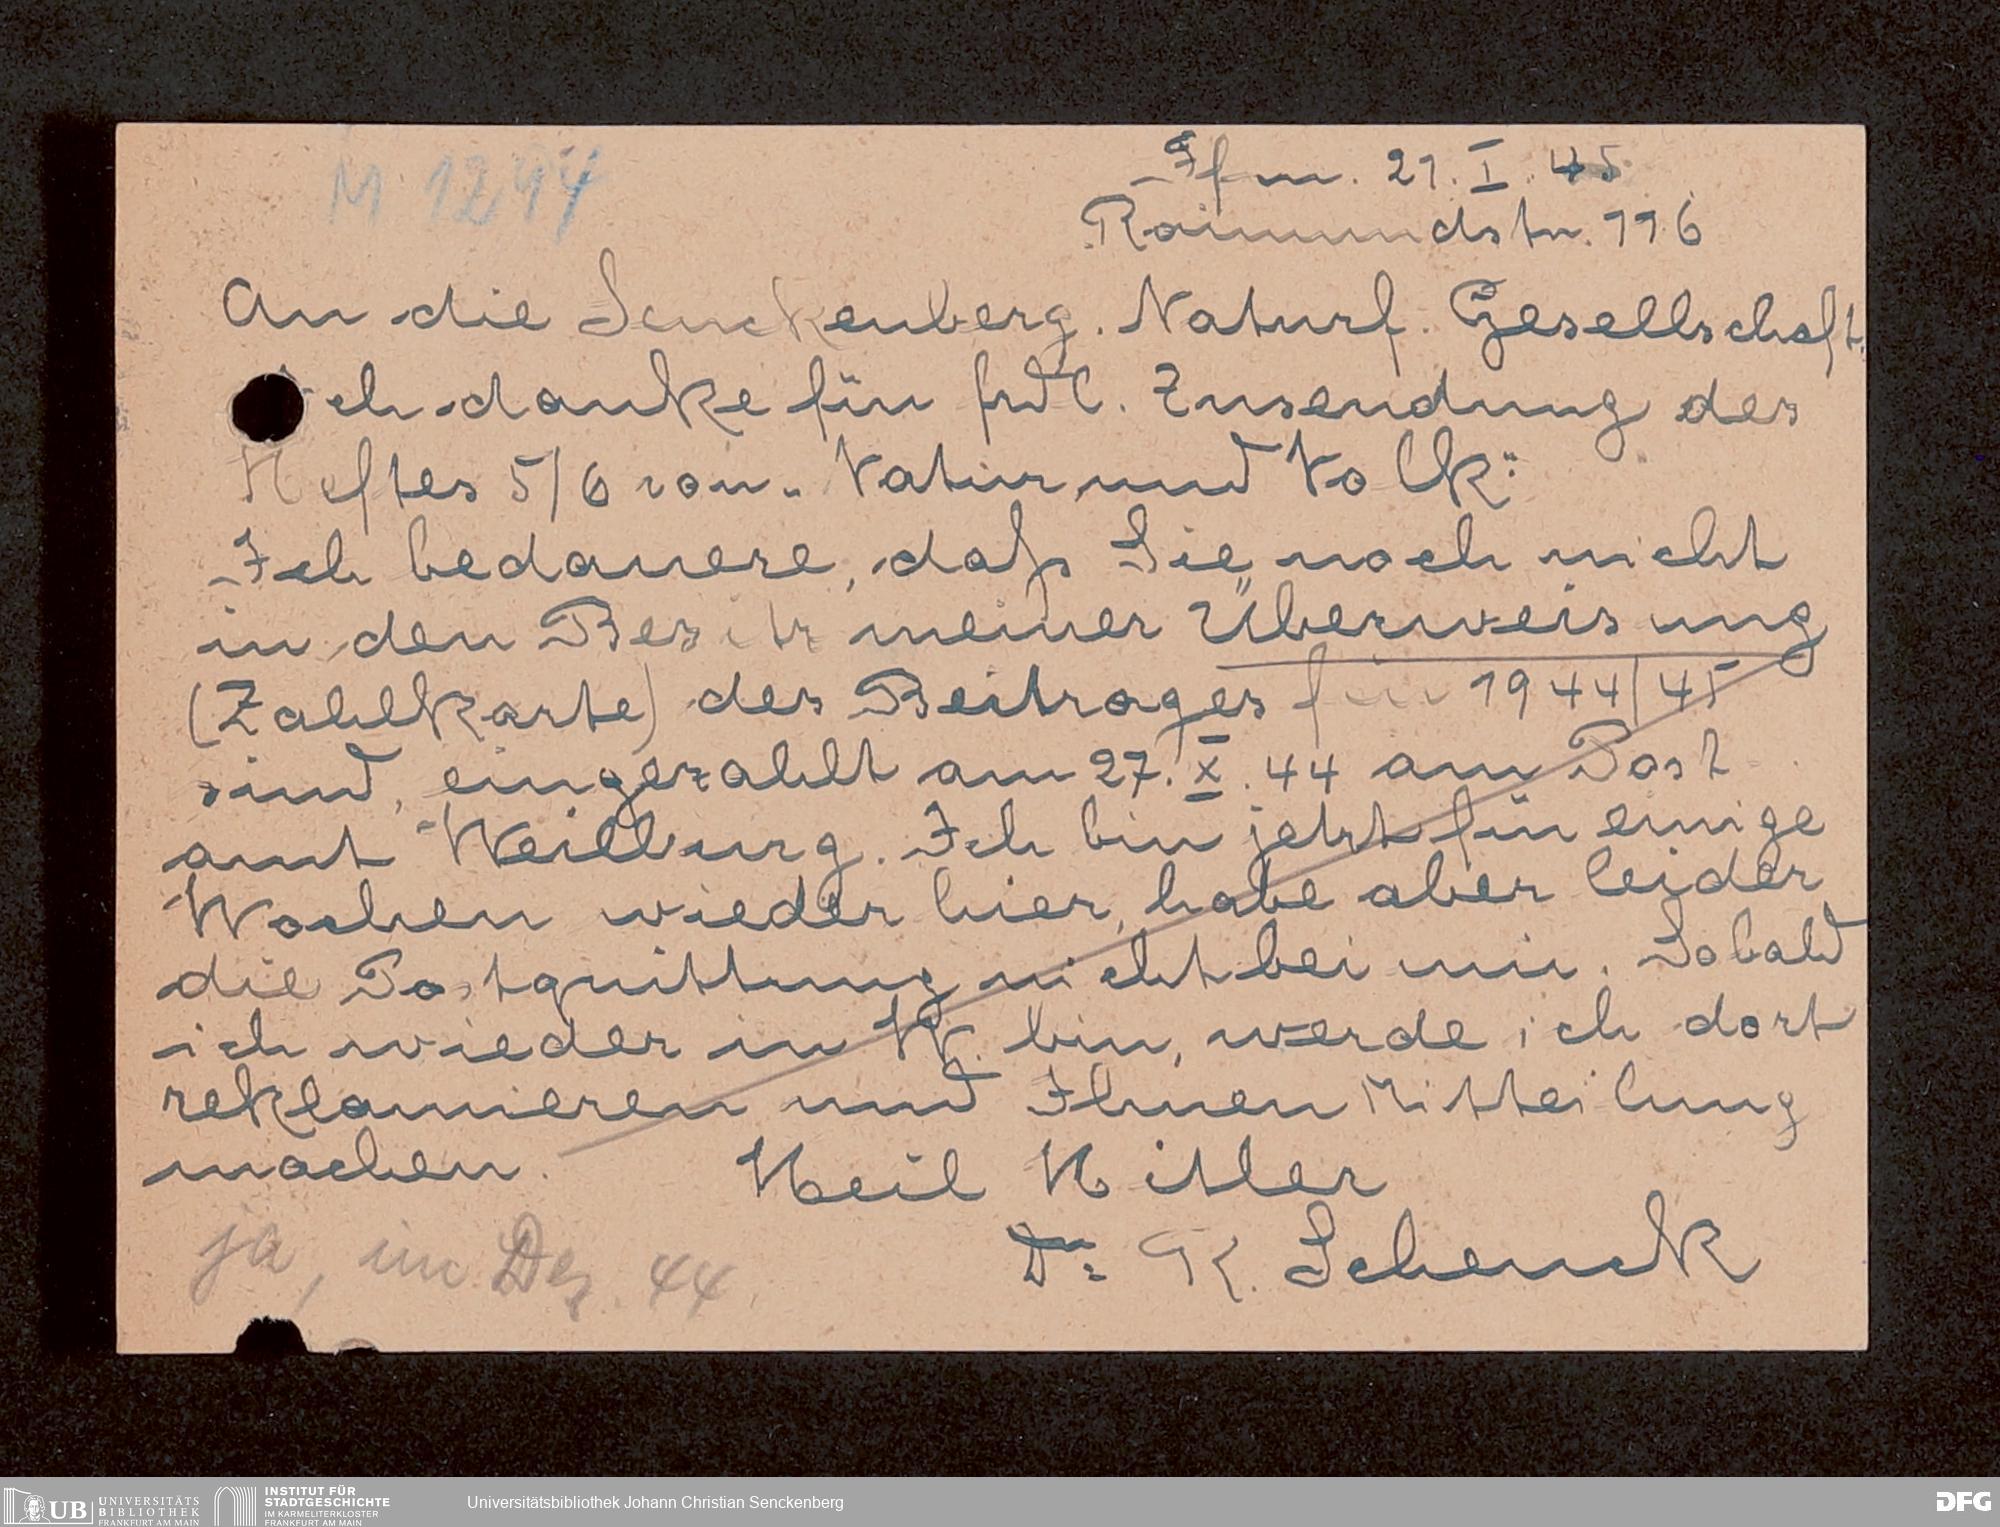 M 1244
Ffm. 21. I. 45
Raimundstr. 116
An die Senckenberg. Naturf. Gesellschaft.
Ich danke für frdl. Zusendung des
Heftes 5/6 von „Natur und Volk“
Ich bedauere, daß Sie noch nicht
in den Besitz meiner Überweisung
(Zahlkarte) des Beitrages für 1944/45
sind, eingezahlt am 27. X. 44 am Post
amt Weilburg. Ich bin jetzt für einige
Wochen wieder hier, habe aber leider
die Postquittung nicht bei mir. Sobald
ich wieder in W. bin, werde ich dort
reklamieren und Ihnen Mitteilung
machen. Heil Hitler
Dr. K. Schenck
ja, im Dez. 44.
UB UNIVERSITÄTS
BIBLIOTHEK
FRANKFURT AM MAIN
INSTITUT FÜR
STADTGESCHICHTE
IM KARMELITERKLOSTER
FRANKFURT AM MAIN
Universitätsbibliothek Johann Christian Senckenberg
DFG